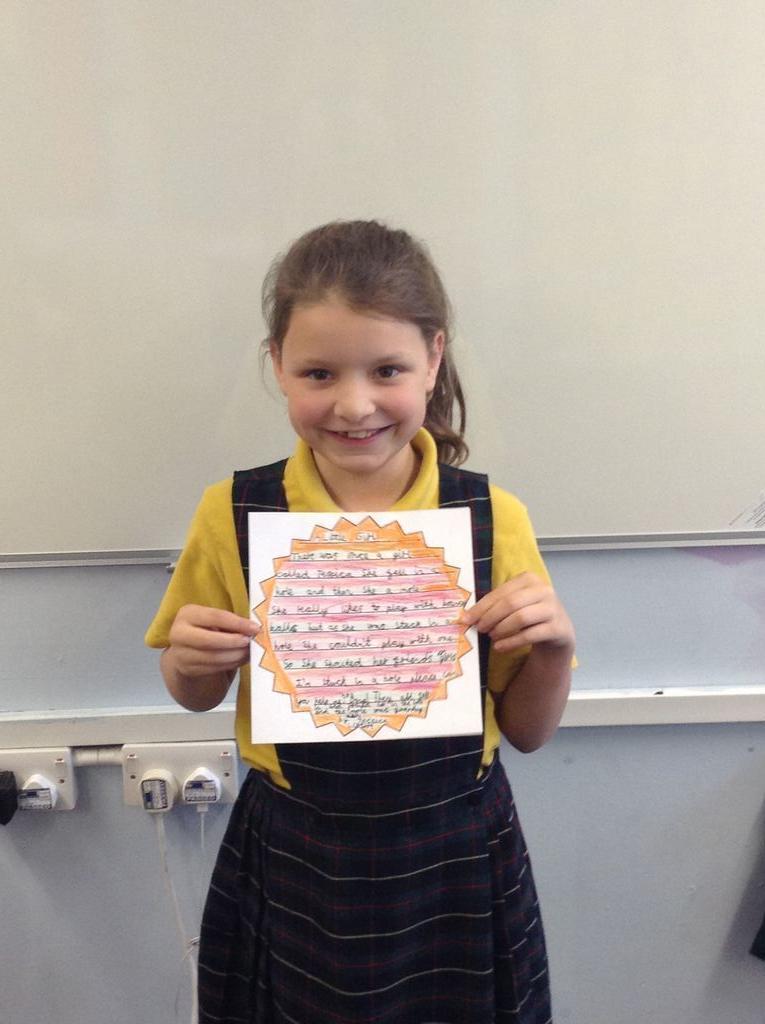 Little Girl
There was once a girl
called Jessica She fell in a
hole and then she a mole
She really likes to play with bouncy
balls but as she was stuck in a
hole she couldn't play with one
So she shouted her friends
I'm stuck in a hole please can
you They all fell
Jessica